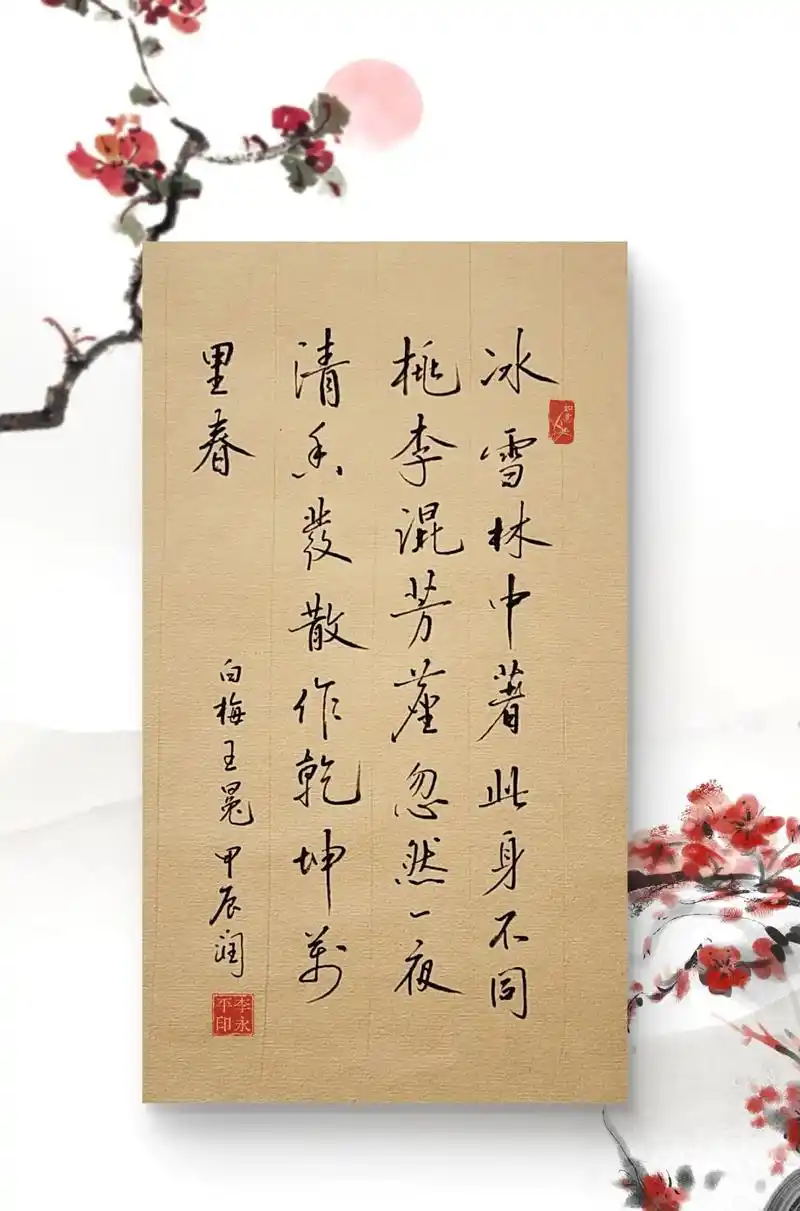 冰雪林中著此身不同
桃李混芳塵忽然一夜
清香發散作乾坤萬
里春
白梅王冕甲辰润
李永平印